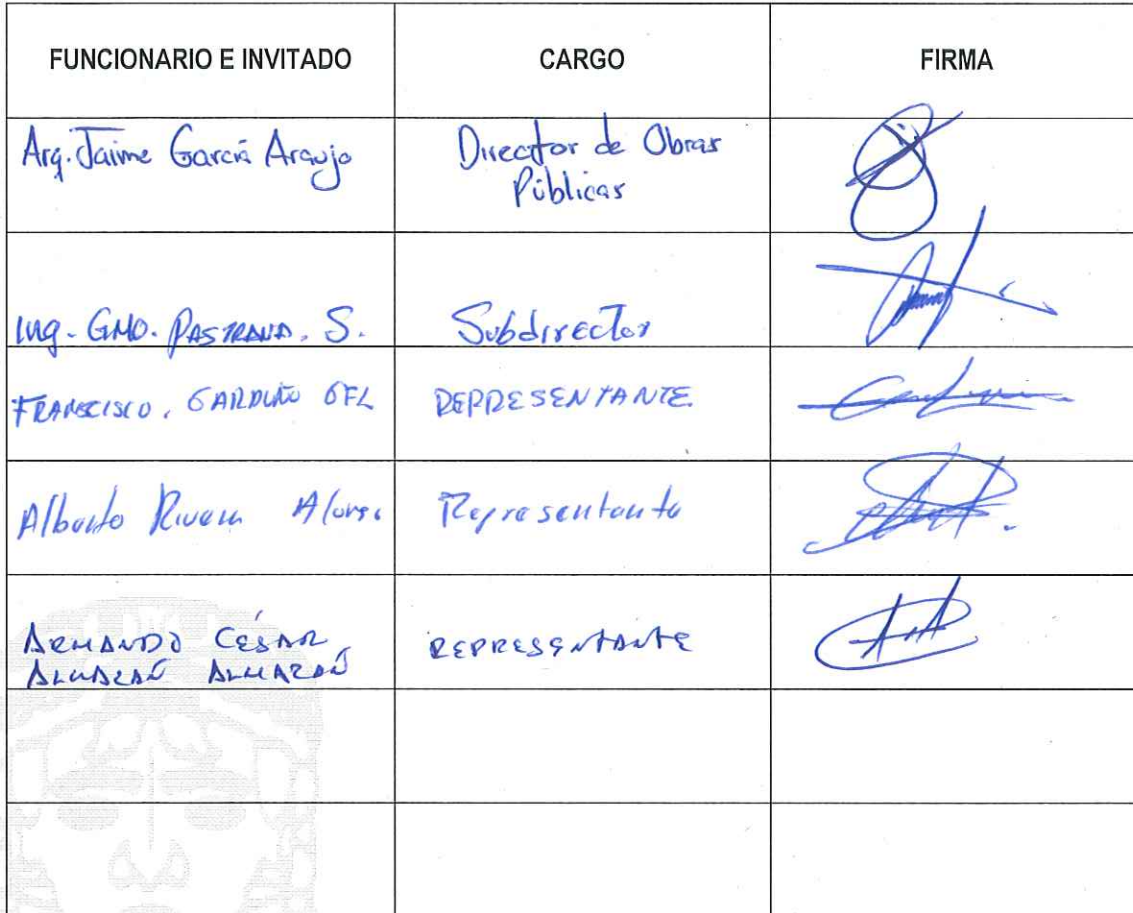 FUNCIONARIO E INVITADO CARGO FIRMA
Arq. Jaime García Araujo Director de Obras
Públicas
Ing. GMO. PASTRANA. S. Subdirector
FRANCISCO. GARDUÑO REPRESENTANTE.
Alberto Rivera Representante
ARMANDO CÉSAR REPRESENTANTE
ALMAZÁN ALMAZÁN